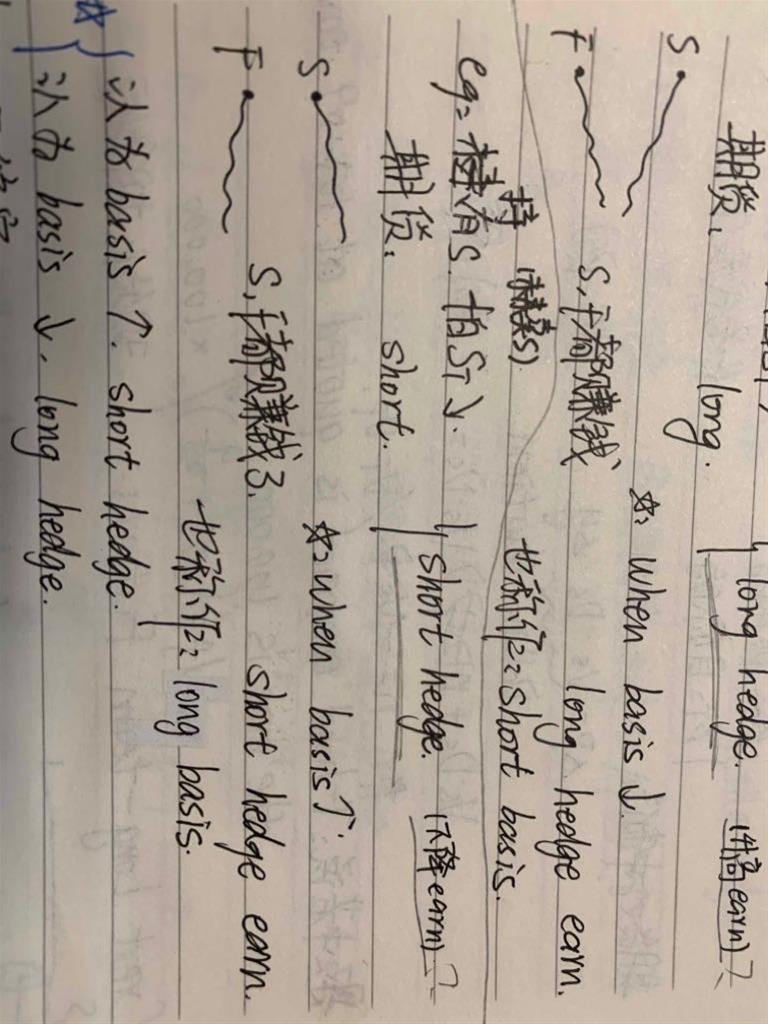 期货: long. long hedge. (升高earn)?
S
S, F都赚钱 ☆: when basis ↓
F
long hedge earn.
也称作: short basis.
持 (未来卖S)
eg: 有S. 怕ST↓. short hedge. (下降earn)?
期货: short.
S
☆: when basis ↑.
F
S, F都赚钱了. short hedge earn.
也称作: long basis.
☆ { 认为 basis ↑. short hedge.
认为 basis ↓. long hedge.